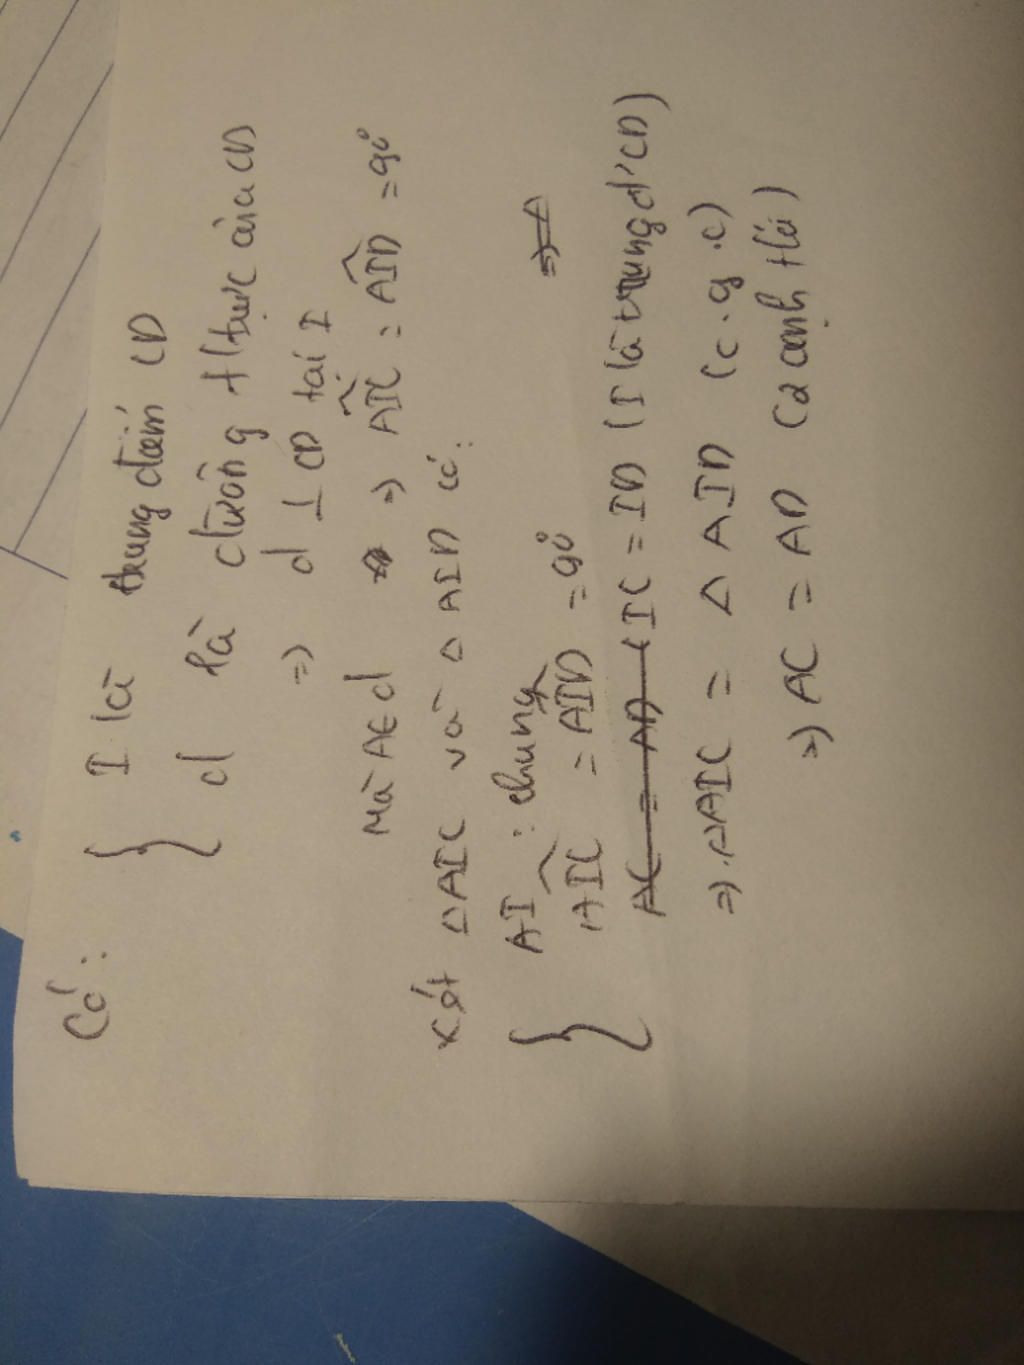 Có: { I là trung điểm CD
d là đường trực của CD
=> d ⊥ CD tại I
Mà A∈d => AIC = AID = 90°
Xét △AIC và △AID có:
{ AI : chung
AIC = AID = 90°
IC = ID (I là trung đ' CD)
=> △AIC = △AID (c.g.c)
=> AC = AD (2 cạnh t/ứ)